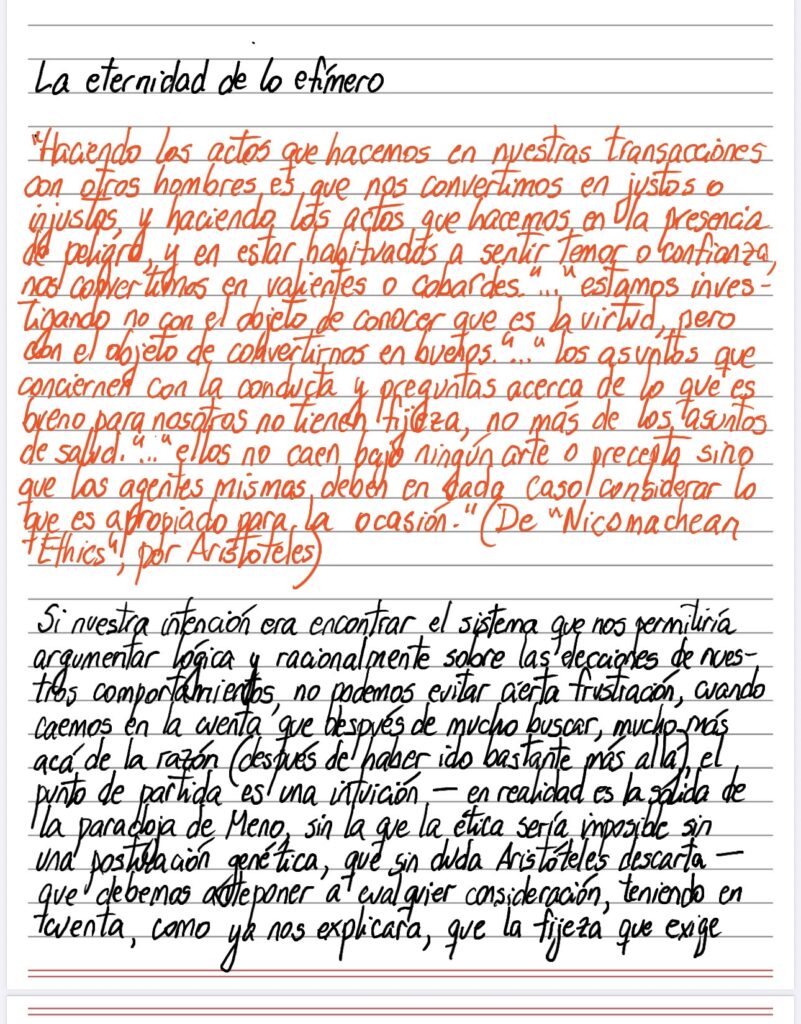 La eternidad de lo efímero
"Haciendo los actos que hacemos en nuestras transacciones
con otros hombres es que nos convertimos en justos o
injustos, y haciendo los actos que hacemos en la presencia
de peligro, y en estar habituados a sentir temor o confianza,
nos convertimos en valientes o cobardes."..."estamos inves-
tigando no con el objeto de conocer que es la virtud, pero
con el objeto de convertirnos en buenos."..."los asuntos que
conciernen con la conducta y preguntas acerca de lo que es
bueno para nosotros no tienen fijeza, no más de los asuntos
de salud."..."ellos no caen bajo ningún arte o precepto sino
que los agentes mismos deben en cada caso considerar lo
que es apropiado para la ocasión." (De "Nicomachean
Ethics", por Aristóteles)
Si nuestra intención era encontrar el sistema que nos permitiría
argumentar lógica y racionalmente sobre las elecciones de nues-
tros comportamientos, no podemos evitar cierta frustración, cuando
caemos en la cuenta que después de mucho buscar, mucho más
acá de la razón (después de haber ido bastante más allá), el
punto de partida es una intuición — en realidad es la salida de
la paradoja de Meno, sin la que la ética sería imposible sin
una postulación genética, que sin duda Aristóteles descarta —
que debemos anteponer a cualquier consideración, teniendo en
cuenta, como ya nos explicara, que la fijeza que exige